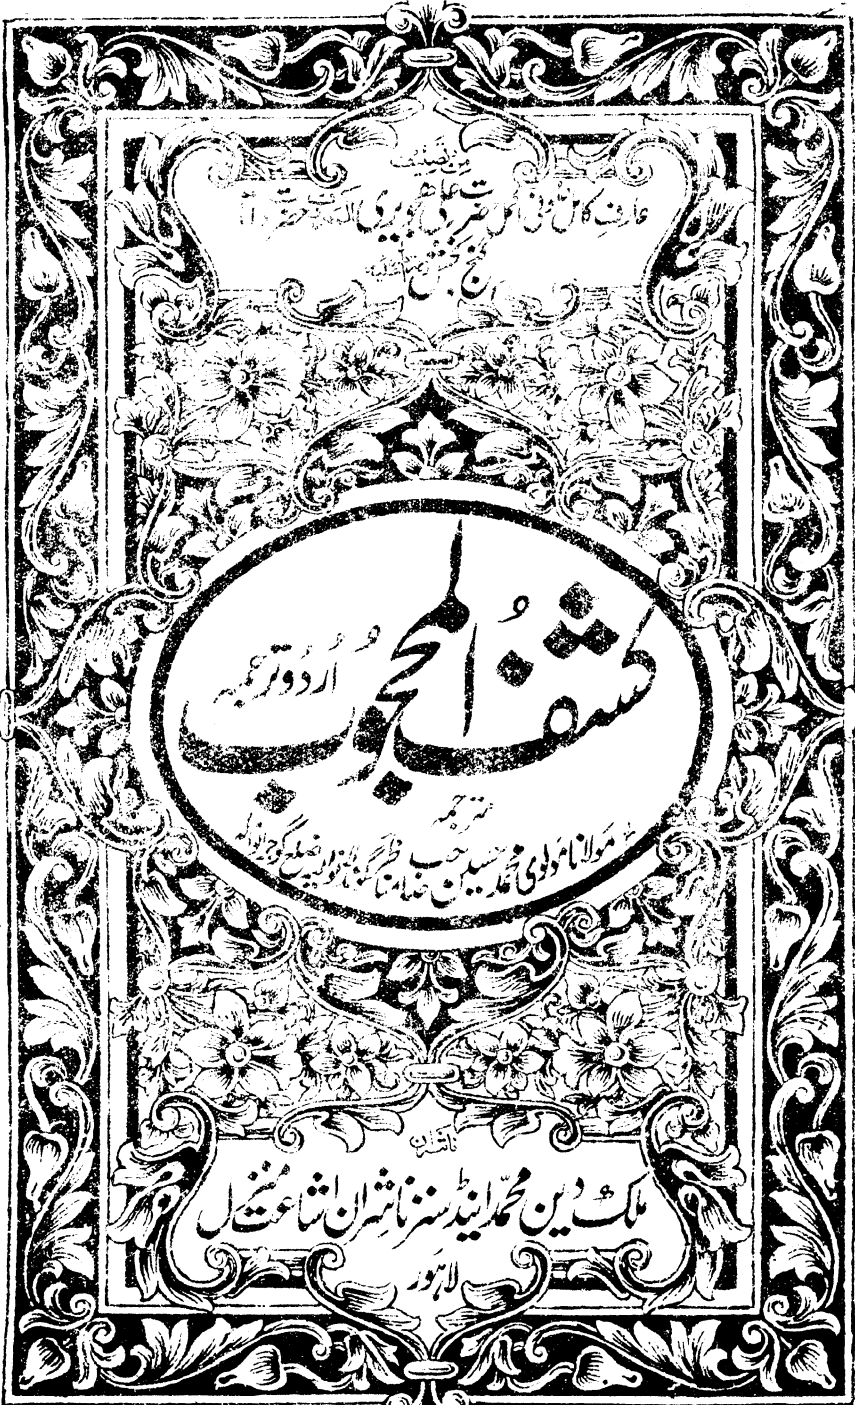 من تصنیف
عارف کامل صوفی اکمل حضرت علی ہجویری المعروف حضرت داتا
گنج بخش
کشفُ المحجوُب
اُردُو ترجمہ
مترجمہ
مولانا مولوی محمد حسین صاحب مناظر گوندلانوالہ ضلع گوجرانوالہ
ناشران
ملک دین محمد اینڈ سنز ناشران اشاعت منزل
لاہور